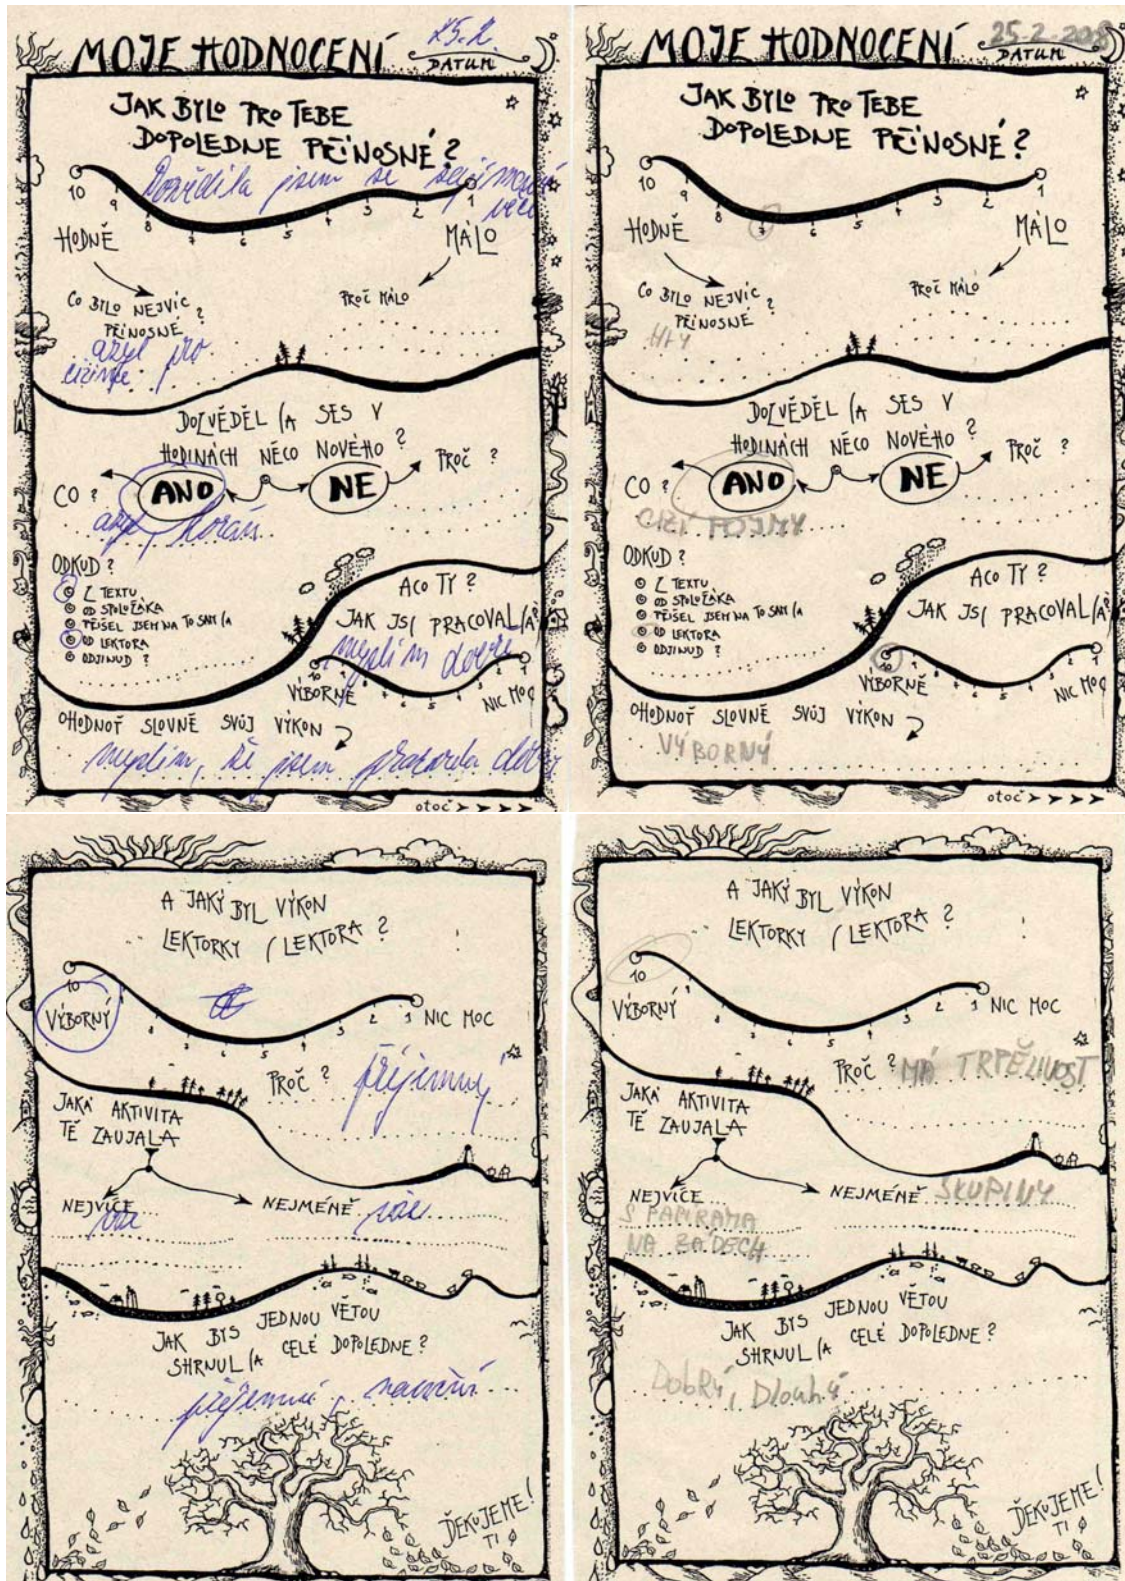 MOJE HODNOCENÍ
25.2.
DATUM
JAK BYLO PRO TEBE
DOPOLEDNE PŘÍNOSNÉ?
Dozvěděla jsem se
10 9 8 7 6 5 4 3 2 1
HODNĚ
MÁLO
CO BYLO NEJVÍC
PŘÍNOSNÉ?
PROČ MÁLO
azyl pro
cizince
DOZVĚDĚL/A SES V
HODINÁCH NĚCO NOVÉHO?
CO?
ANO
NE
PROČ?
azyl, korán
ODKUD?
Z TEXTU
OD SPOLUŽÁKA
PŘIŠEL JSEM NA TO SÁM/A
OD LEKTORA
ODJINUD?
A CO TY?
JAK JSI PRACOVAL/A?
myslím dobře
VÝBORNĚ
NIC MOC
OHODNOŤ SLOVNĚ SVŮJ VÝKON
myslím, že jsem pracovala
otoč
MOJE HODNOCENÍ
25.2.
DATUM
JAK BYLO PRO TEBE
DOPOLEDNE PŘÍNOSNÉ?
10 9 8 7 6 5 4 3 2 1
HODNĚ
MÁLO
CO BYLO NEJVÍC
PŘÍNOSNÉ?
PROČ MÁLO
HRY
DOZVĚDĚL/A SES V
HODINÁCH NĚCO NOVÉHO?
CO?
ANO
NE
PROČ?
CIZÍ POJMY
ODKUD?
Z TEXTU
OD SPOLUŽÁKA
PŘIŠEL JSEM NA TO SÁM/A
OD LEKTORA
ODJINUD?
A CO TY?
JAK JSI PRACOVAL/A?
VÝBORNĚ
NIC MOC
OHODNOŤ SLOVNĚ SVŮJ VÝKON
VÝBORNÝ
otoč
A JAKÝ BYL VÝKON
LEKTORKY / LEKTORA?
10
VÝBORNÝ
NIC MOC
PROČ? příjemný
JAKÁ AKTIVITA
TĚ ZAUJALA
NEJVÍCE
NEJMÉNĚ
vše
JAK BYS JEDNOU VĚTOU
SHRNUL/A CELÉ DOPOLEDNE?
příjemné, naučné
DĚKUJEME!
TI
A JAKÝ BYL VÝKON
LEKTORKY / LEKTORA?
10
VÝBORNÝ
NIC MOC
PROČ? MÁ TRPĚLIVOST
JAKÁ AKTIVITA
TĚ ZAUJALA
NEJVÍCE
NEJMÉNĚ SKUPINY
S PAPÍRAMA
NA ZÁDECH
JAK BYS JEDNOU VĚTOU
SHRNUL/A CELÉ DOPOLEDNE?
Dobrý, Dlouhý
DĚKUJEME!
TI